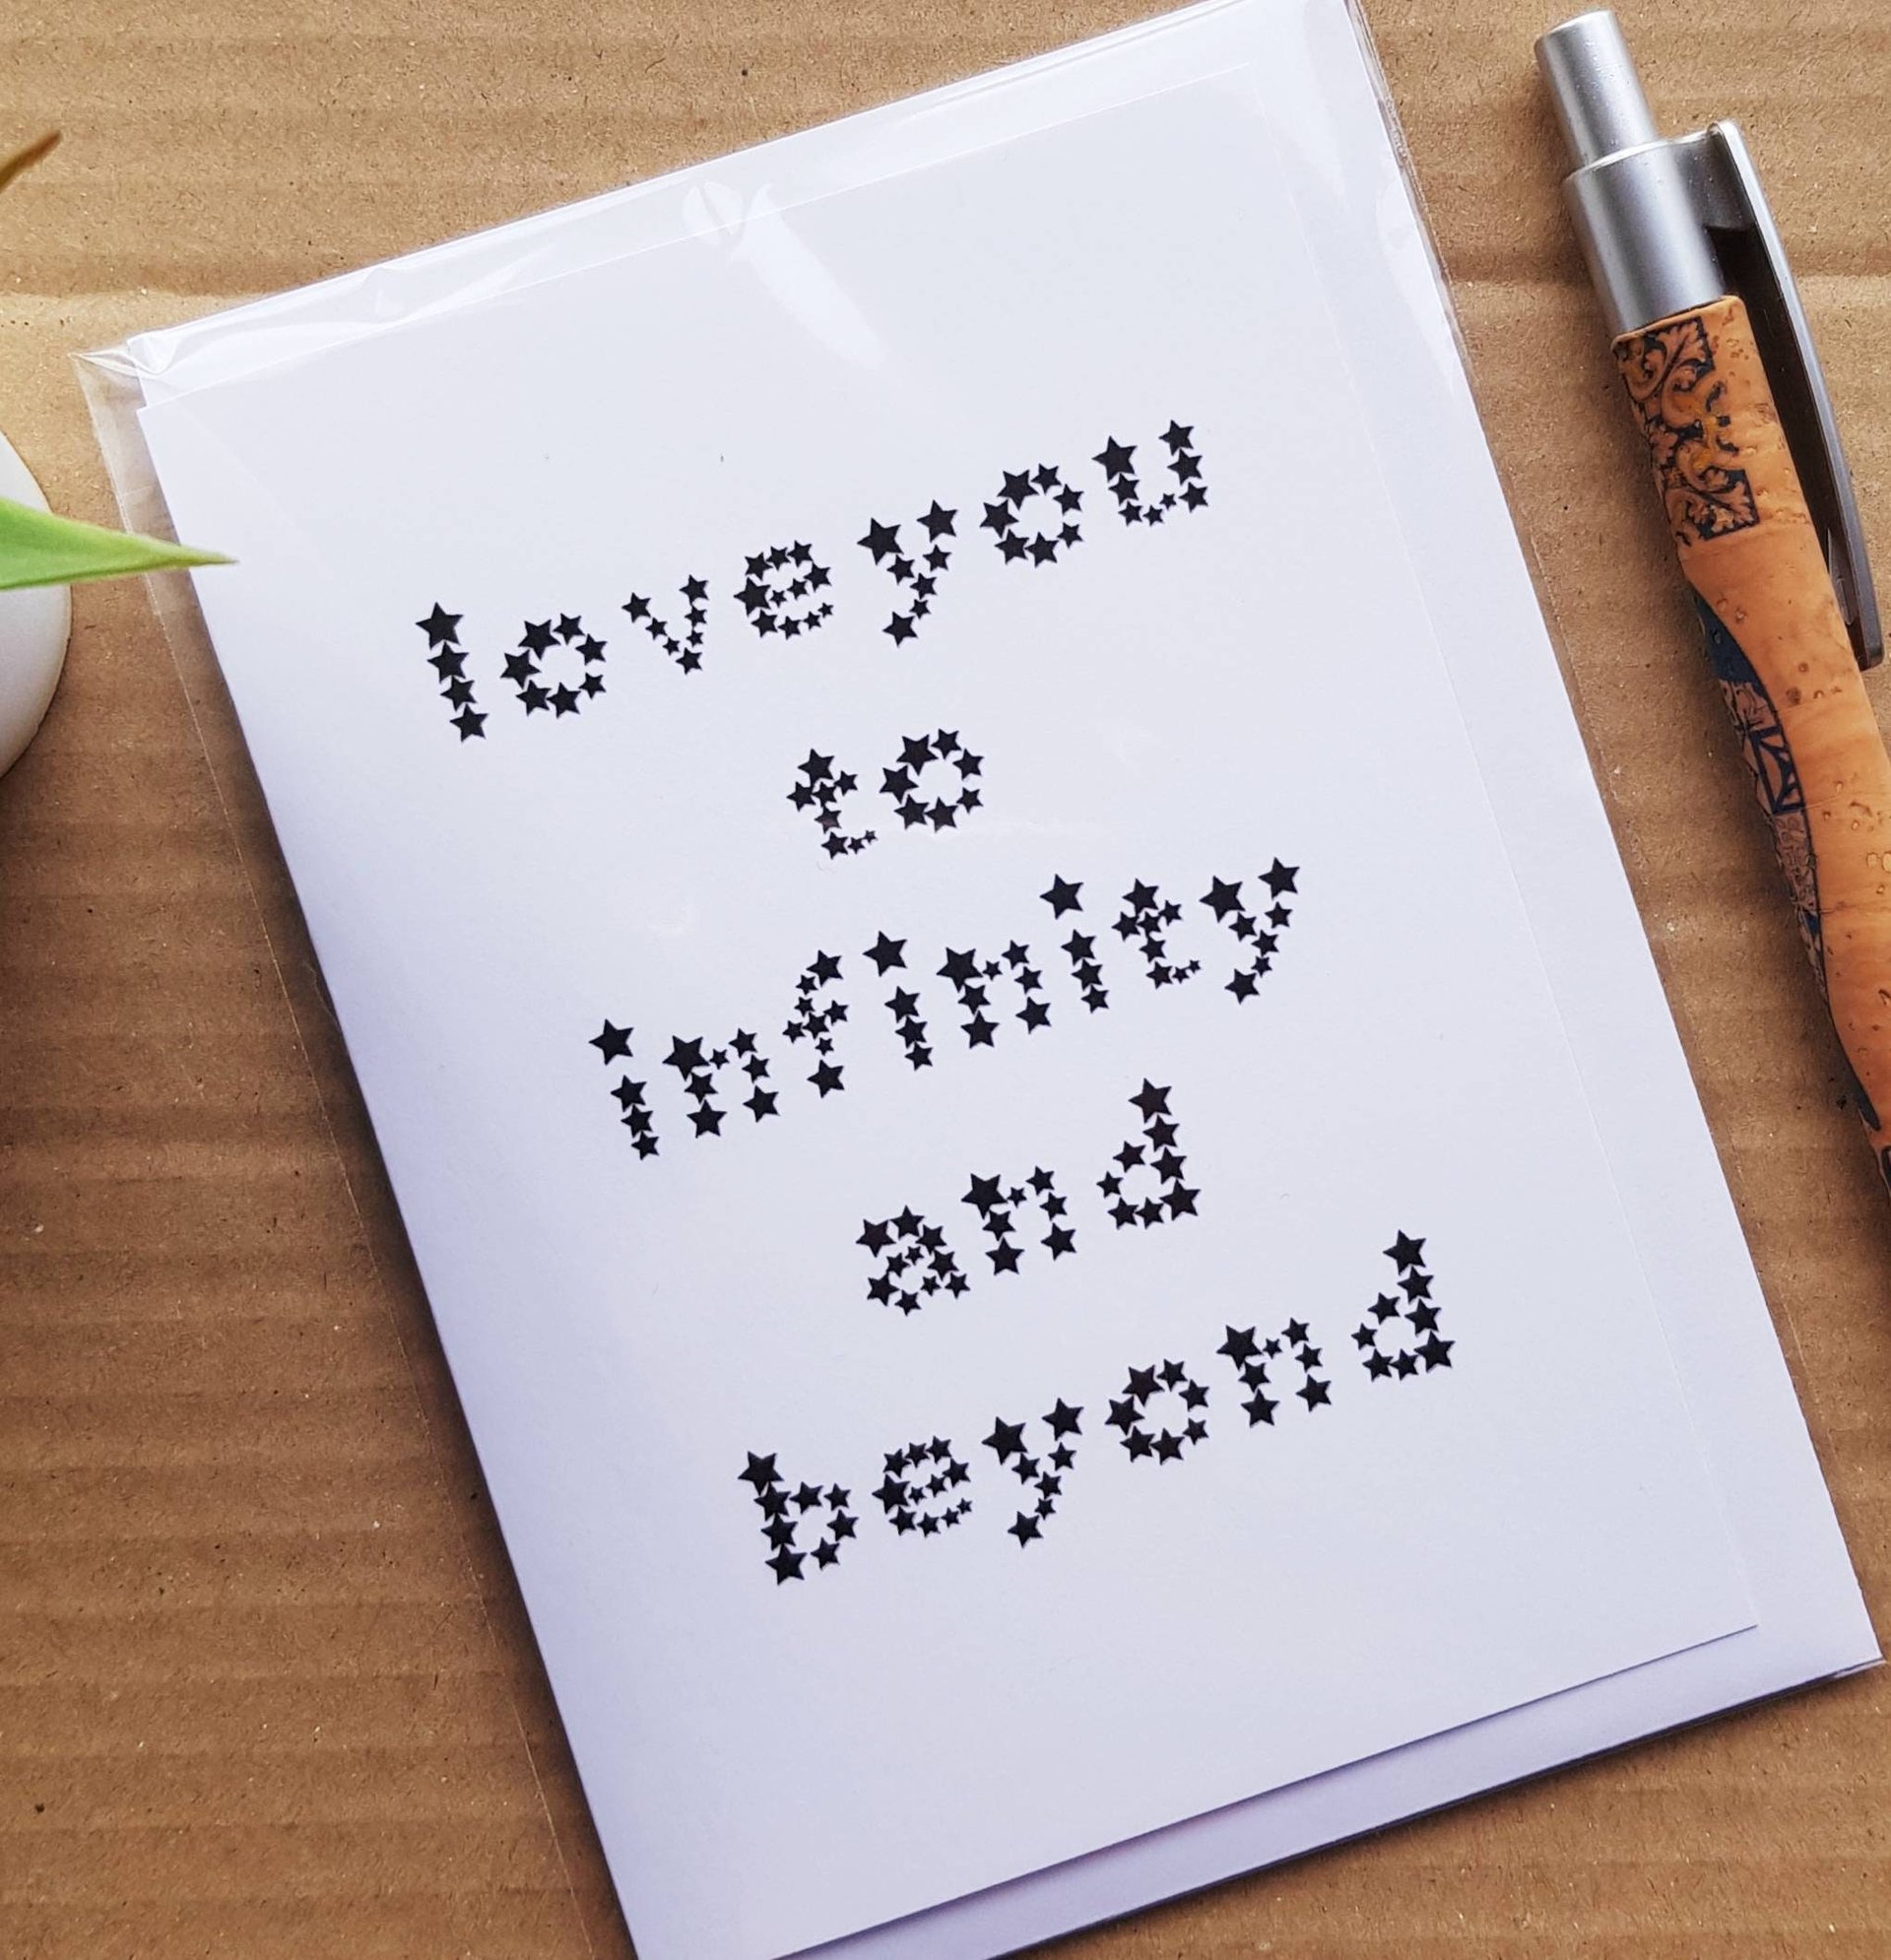 love you
to
infinity
and
beyond